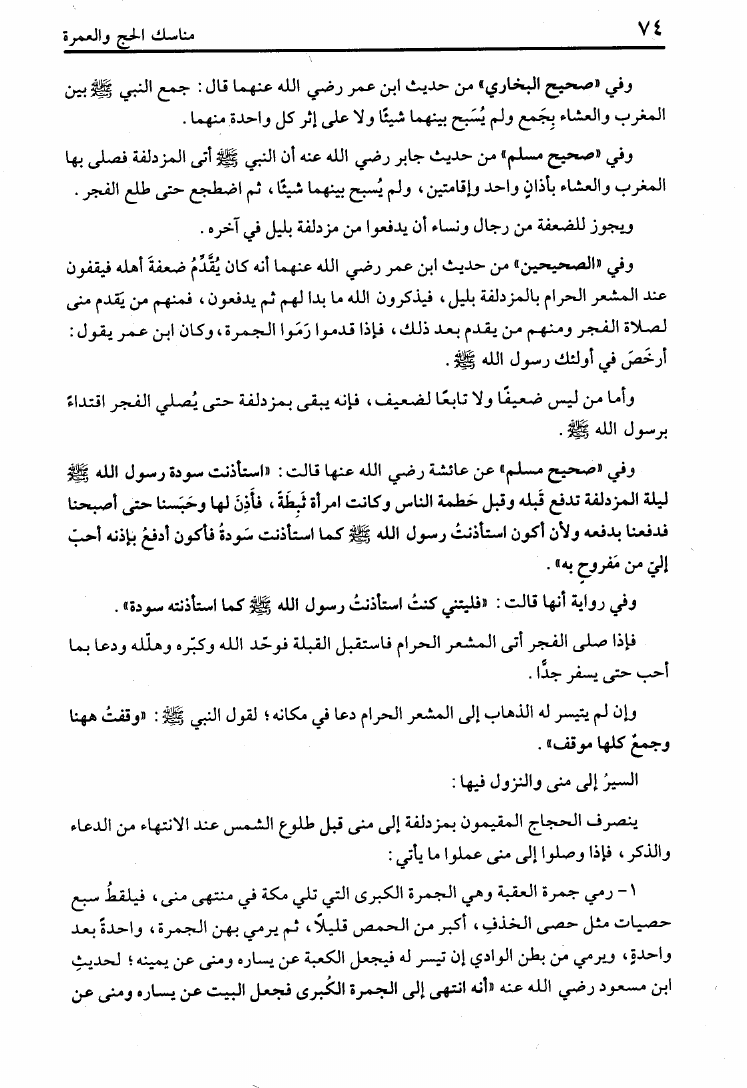 ٧٤
مناسك الحج والعمرة
وفي «صحيح البخاري» من حديث ابن عمر رضي الله عنهما قال: جمع النبي ﷺ بين
المغرب والعشاء بِجَمع ولم يُسَبح بينهما شيئًا ولا على إثر كل واحدة منهما.
وفي «صحيح مسلم» من حديث جابر رضي الله عنه أن النبي ﷺ أتى المزدلفة فصلى بها
المغرب والعشاء بأذانٍ واحد وإقامتين، ولم يُسبح بينهما شيئًا، ثم اضطجع حتى طلع الفجر.
ويجوز للضعفة من رجال ونساء أن يدفعوا من مزدلفة بليل في آخره.
وفي «الصحيحين» من حديث ابن عمر رضي الله عنهما أنه كان يُقَدِّمُ ضعفةَ أهله فيقفون
عند المشعر الحرام بالمزدلفة بليل، فيذكرون الله ما بدا لهم ثم يدفعون، فمنهم من يَقدم منى
لصلاة الفجر ومنهم من يقدم بعد ذلك، فإذا قدموا رَمَوا الجمرة، وكان ابن عمر يقول:
أرخَصَ في أولئك رسول الله ﷺ.
وأما من ليس ضعيفًا ولا تابعًا لضعيف، فإنه يبقى بمزدلفة حتى يُصلي الفجر اقتداءً
برسول الله ﷺ.
وفي «صحيح مسلم» عن عائشة رضي الله عنها قالت: «استأذنت سودة رسول الله ﷺ
ليلة المزدلفة تدفع قَبله وقبل حَطمة الناس وكانت امرأة ثَبِطَةً، فأَذِنَ لها وحَبَسنا حتى أصبحنا
فدفعنا بدفعه ولأن أكون استأذنتُ رسول الله ﷺ كما استأذنت سَودةُ فأكون أدفعُ بإذنه أحبّ
إليّ من مَفروحٍ به».
وفي رواية أنها قالت: «فليتني كنتُ استأذنتُ رسول الله ﷺ كما استأذنته سودة».
فإذا صلى الفجر أتى المشعر الحرام فاستقبل القبلة فوحّد الله وكبّره وهلّله ودعا بما
أحب حتى يسفر جدًّا.
وإن لم يتيسر له الذهاب إلى المشعر الحرام دعا في مكانه؛ لقول النبي ﷺ: «وقفتُ ههنا
وجمعٌ كلها موقف».
السيرُ إلى منى والنزول فيها:
ينصرف الحجاج المقيمون بمزدلفة إلى منى قبل طلوع الشمس عند الانتهاء من الدعاء
والذكر، فإذا وصلوا إلى منى عملوا ما يأتي:
١- رمي جمرة العقبة وهي الجمرة الكبرى التي تلي مكة في منتهى منى، فيلقطُ سبع
حصيات مثل حصى الخذفِ، أكبر من الحمص قليلًا، ثم يرمي بهن الجمرة، واحدةً بعد
واحدةٍ، ويرمي من بطن الوادي إن تيسر له فيجعل الكعبة عن يساره ومنى عن يمينه؛ لحديثِ
ابن مسعود رضي الله عنه «أنه انتهى إلى الجمرة الكُبرى فجعل البيت عن يساره ومنى عن